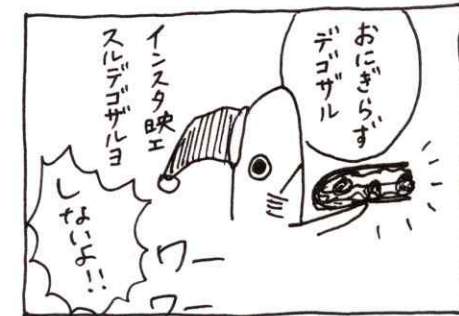 おにぎらず
デゴザル
インスタ映エ
スルデゴザルヨ
しないよ!!
ワー
ワー